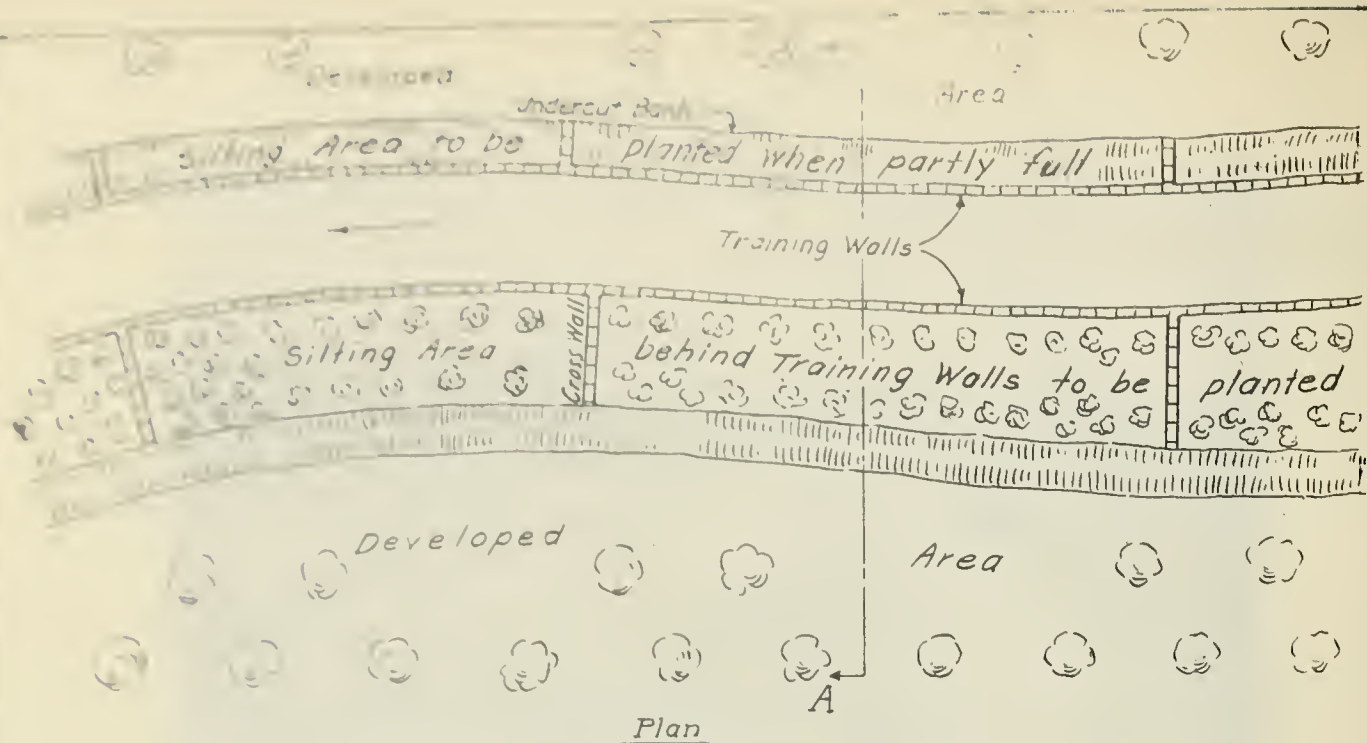 Developed Area
Undercut Bank
Silting Area to be planted when partly full
Training Walls
Cross Wall
Silting Area behind Training Walls to be planted
Developed Area
A
Plan